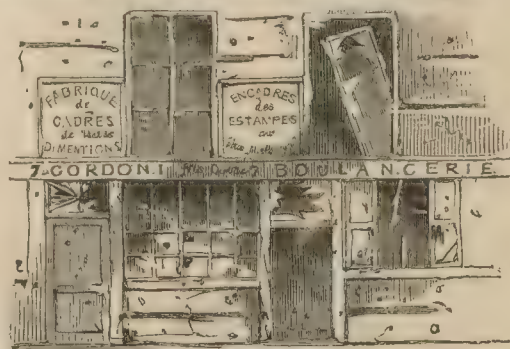 FABRIQUE
de
CADRES
de
DIMENTIONS
ENCADRES
des
ESTAMPES
7 CORDONI 7 BOULANCERIE